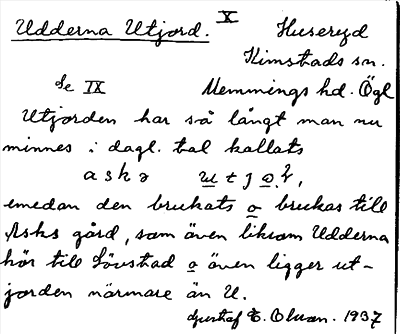 Udderna Utjord. X Huseryd
Kimstads sn.
Se IX Memmings hd. Ögl
Utjorden har så långt man nu
minnes i dagl. tal kallats
aska utjoɽ,
emedan den brukats o brukas till
Asks gård, som även liksom Udderna
hör till Lövstad o även ligger ut-
jorden närmare än U.
Gustaf E. Olsson. 1937